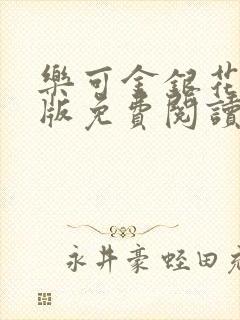 樂可金銀花
版免費閱讀
永井豪蛭田充